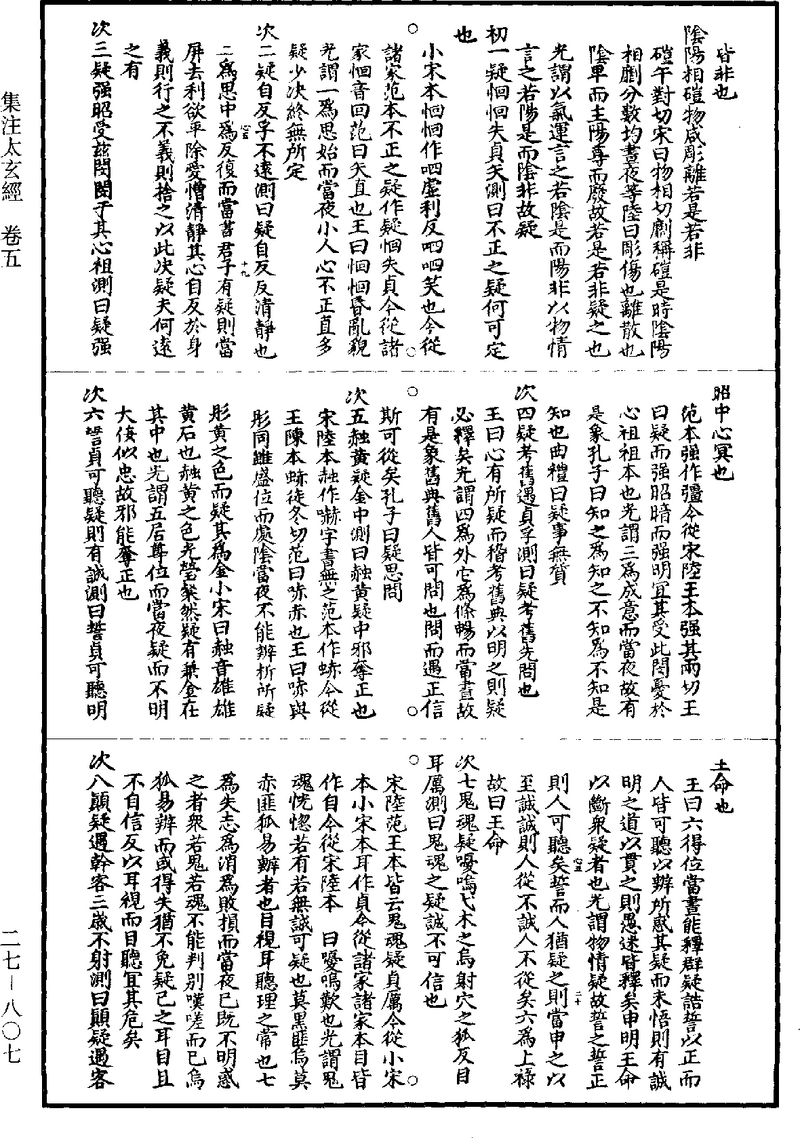 皆非也
陰陽相磑物咸彫離若是若非
磑午對切宋曰物相切劘稱磑是時陰陽
相劘分數均晝夜等陸曰彫傷也離散也
陰卑而主陽尊而廢故若是若非疑之也
光謂以氣運言之若陰是而陽非以物情
言之若陽是而陰非故疑
初一疑恛恛失貞矢測曰不正之疑何可定
也
小宋本恛恛作呬虛利反呬呬笑也今從
諸家范本不正之疑作疑恛失貞今從諸
家恛音回范曰矢直也王曰恛恛昏亂貌
光謂一為思始而當夜小人心不正直多
疑少決終無所定
次二疑自反孚不遠測曰疑自反反清靜也
二為思中為反復而當晝君子有疑則當
屏去利欲平除愛憎清靜其心自反於身
義則行之不義則捨之以此決疑夫何遠
之有
次三疑强昭受茲閔閔于其心祖測曰疑强
昭中心冥也
范本强作彊今從宋陸王本强其兩切王
曰疑而强昭暗而强明宜其受此閔憂於
心祖祖本也光謂三為成意而當夜故有
是象孔子曰知之為知之不知為不知是
知也曲禮曰疑事無質
次四疑考舊遇貞孚測曰疑考舊先問也
王曰心有所疑而稽考舊典以明之則疑
必釋矣光謂四為外它為條暢而當晝故
有是象舊典舊人皆可問也問而遇正信
斯可從矣孔子曰疑思問
次五䖔黃疑金中測曰䖔黃疑中邪奪正也
宋陸本䖔作嚇字書無之范本作蛂今從
王陳本蛂徒冬切范曰蛂赤也王曰蛂與
彤同雖盛位而處陰當夜不能辨析所疑
彤黃之色而疑其為金小宋曰䖔音雄雄
黃石也䖔黃之色光瑩粲然疑有兼金在
其中也光謂五居尊位而當夜疑而不明
大佞似忠故邪能奪正也
次六誓貞可聽疑則有誠測曰誓貞可聽明
王命也
王曰六得位當晝能釋群疑誥誓以正而
人皆可聽以辨所惑其疑而未悟則有誠
明之道以貫之則愚迷皆釋矣申明王命
以斷衆疑者也光謂物情疑故誓之誓正
則人可聽矣誓而人猶疑之則當申之以
至誠誠則人從不誠人不從矣六為上祿
故曰王命
次七鬼魂疑嚘鳴弋木之烏射穴之狐反目
耳厲測曰鬼魂之疑誠不可信也
宋陸范王本皆云鬼魂疑貞厲今從小宋
本小宋本耳作貞今從諸家諸家本目皆
作自今從宋陸本　曰嚘鳴歎也光謂鬼
魂恍惚若有若無誠可疑也莫黑匪烏莫
赤匪狐易辨者也目視耳聽理之常也七
為失志為消為敗損而當夜已既不明惑
之者衆若鬼若魂不能判別嘆嗟而已烏
狐易辨而或得失猶不免疑已之耳目且
不自信反以耳視而目聽宜其危矣
次八顛疑遇幹客三歲不射測曰顛疑遇客
集注太玄經　卷五
二七－八〇七